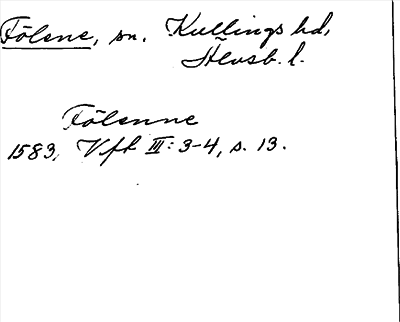 Fölene, sn. Kullings hd,
Älvsb. l.
Fölenne
1583, Vfh III: 3-4, s. 13.